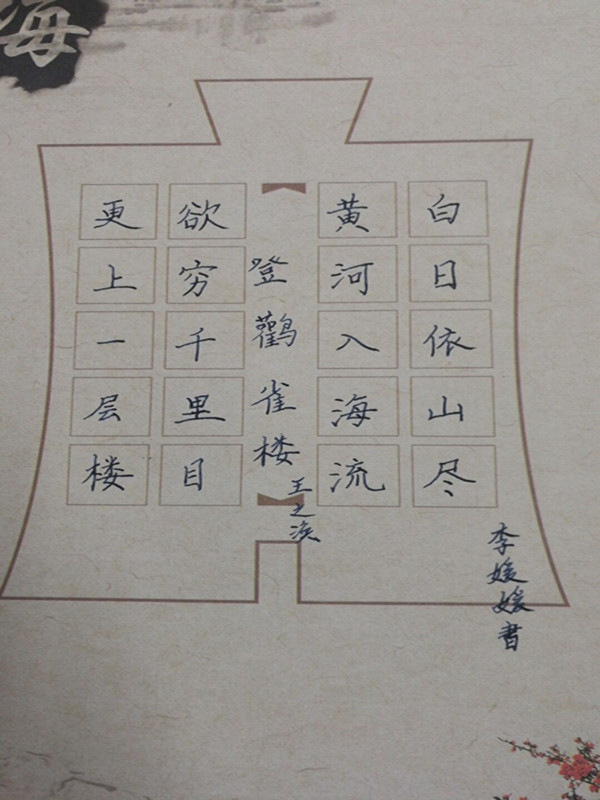 海
白日依山尽
黄河入海流
登鸛雀楼
王之涣
欲穷千里目
更上一层楼
李媛媛書